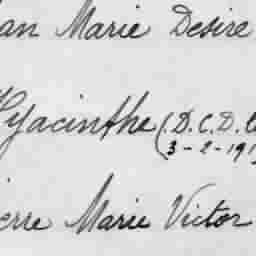 an Marie Desire
Hyacinthe (D.C.D. le
3-2-191
ierre Marie Victor